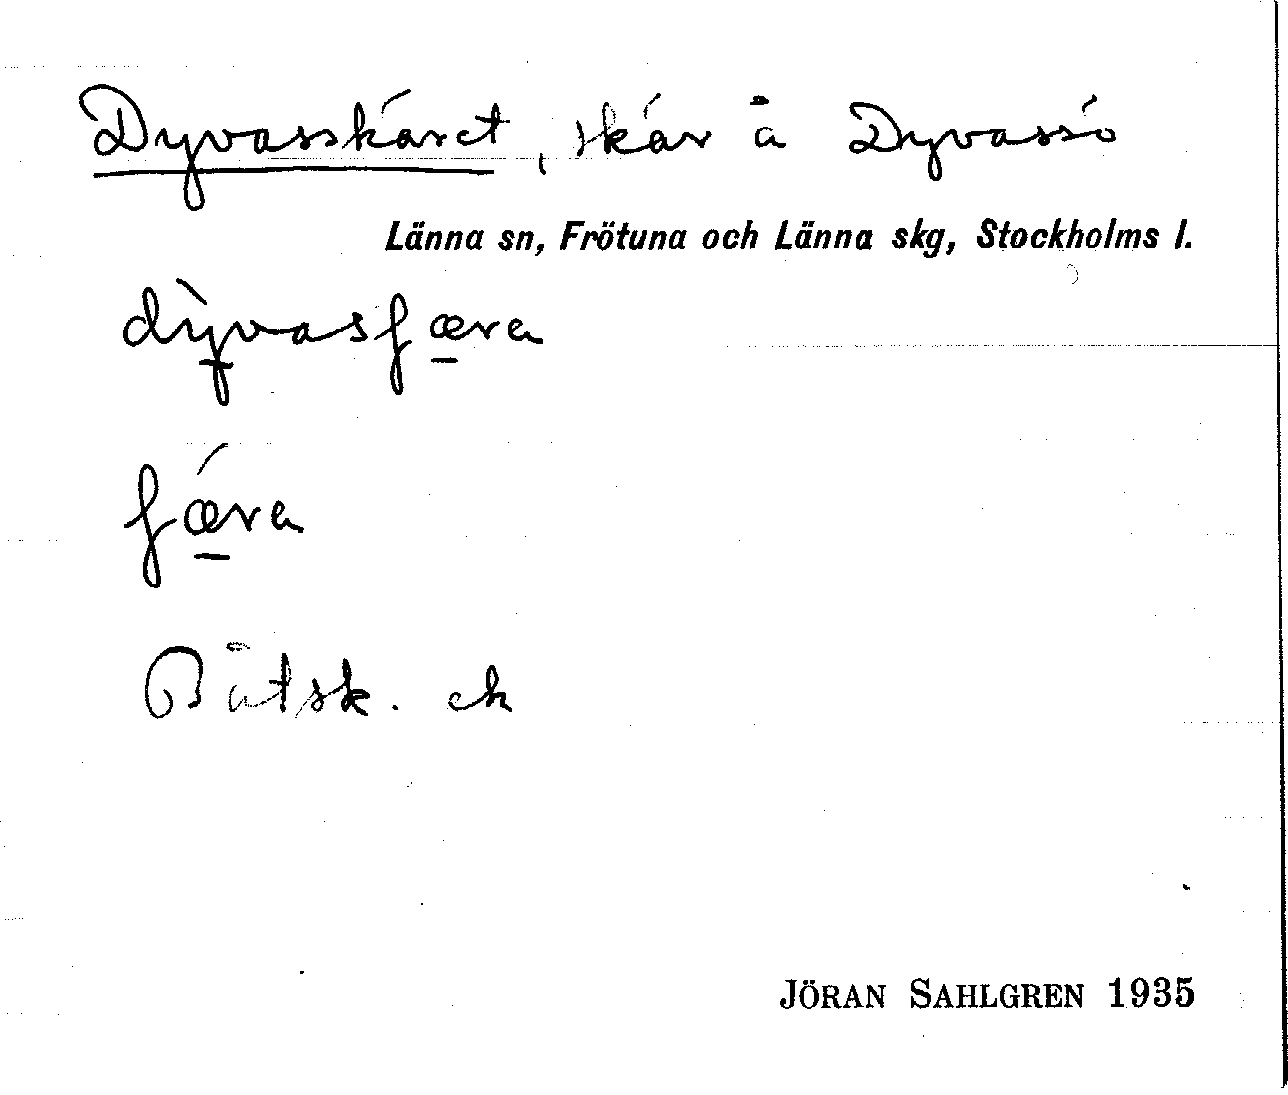 Dyvasskäret, skär å Dyvassö
Länna sn, Frötuna och Länna skg, Stockholms l.
dỳvasʃæra
ʃǽra
Båtsk. ek
JÖRAN SAHLGREN 1935